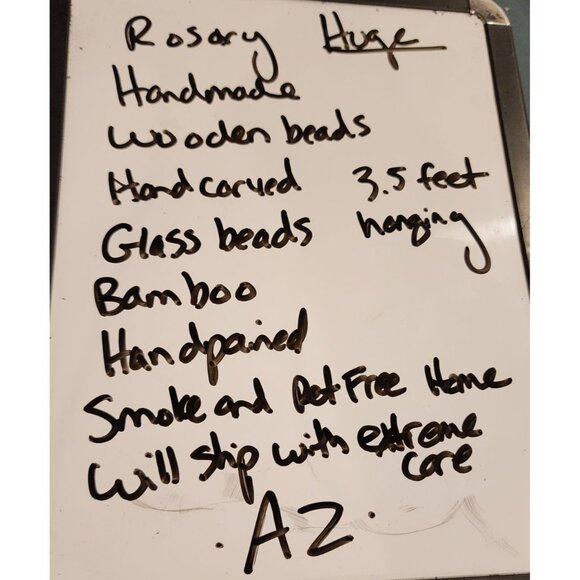 Rosary Huge
Handmade
Wooden beads
Hand carved 3.5 feet
Glass beads hanging
Bamboo
Handpained
Smoke and Pet Free Home
Will ship with extreme
care
.AZ.